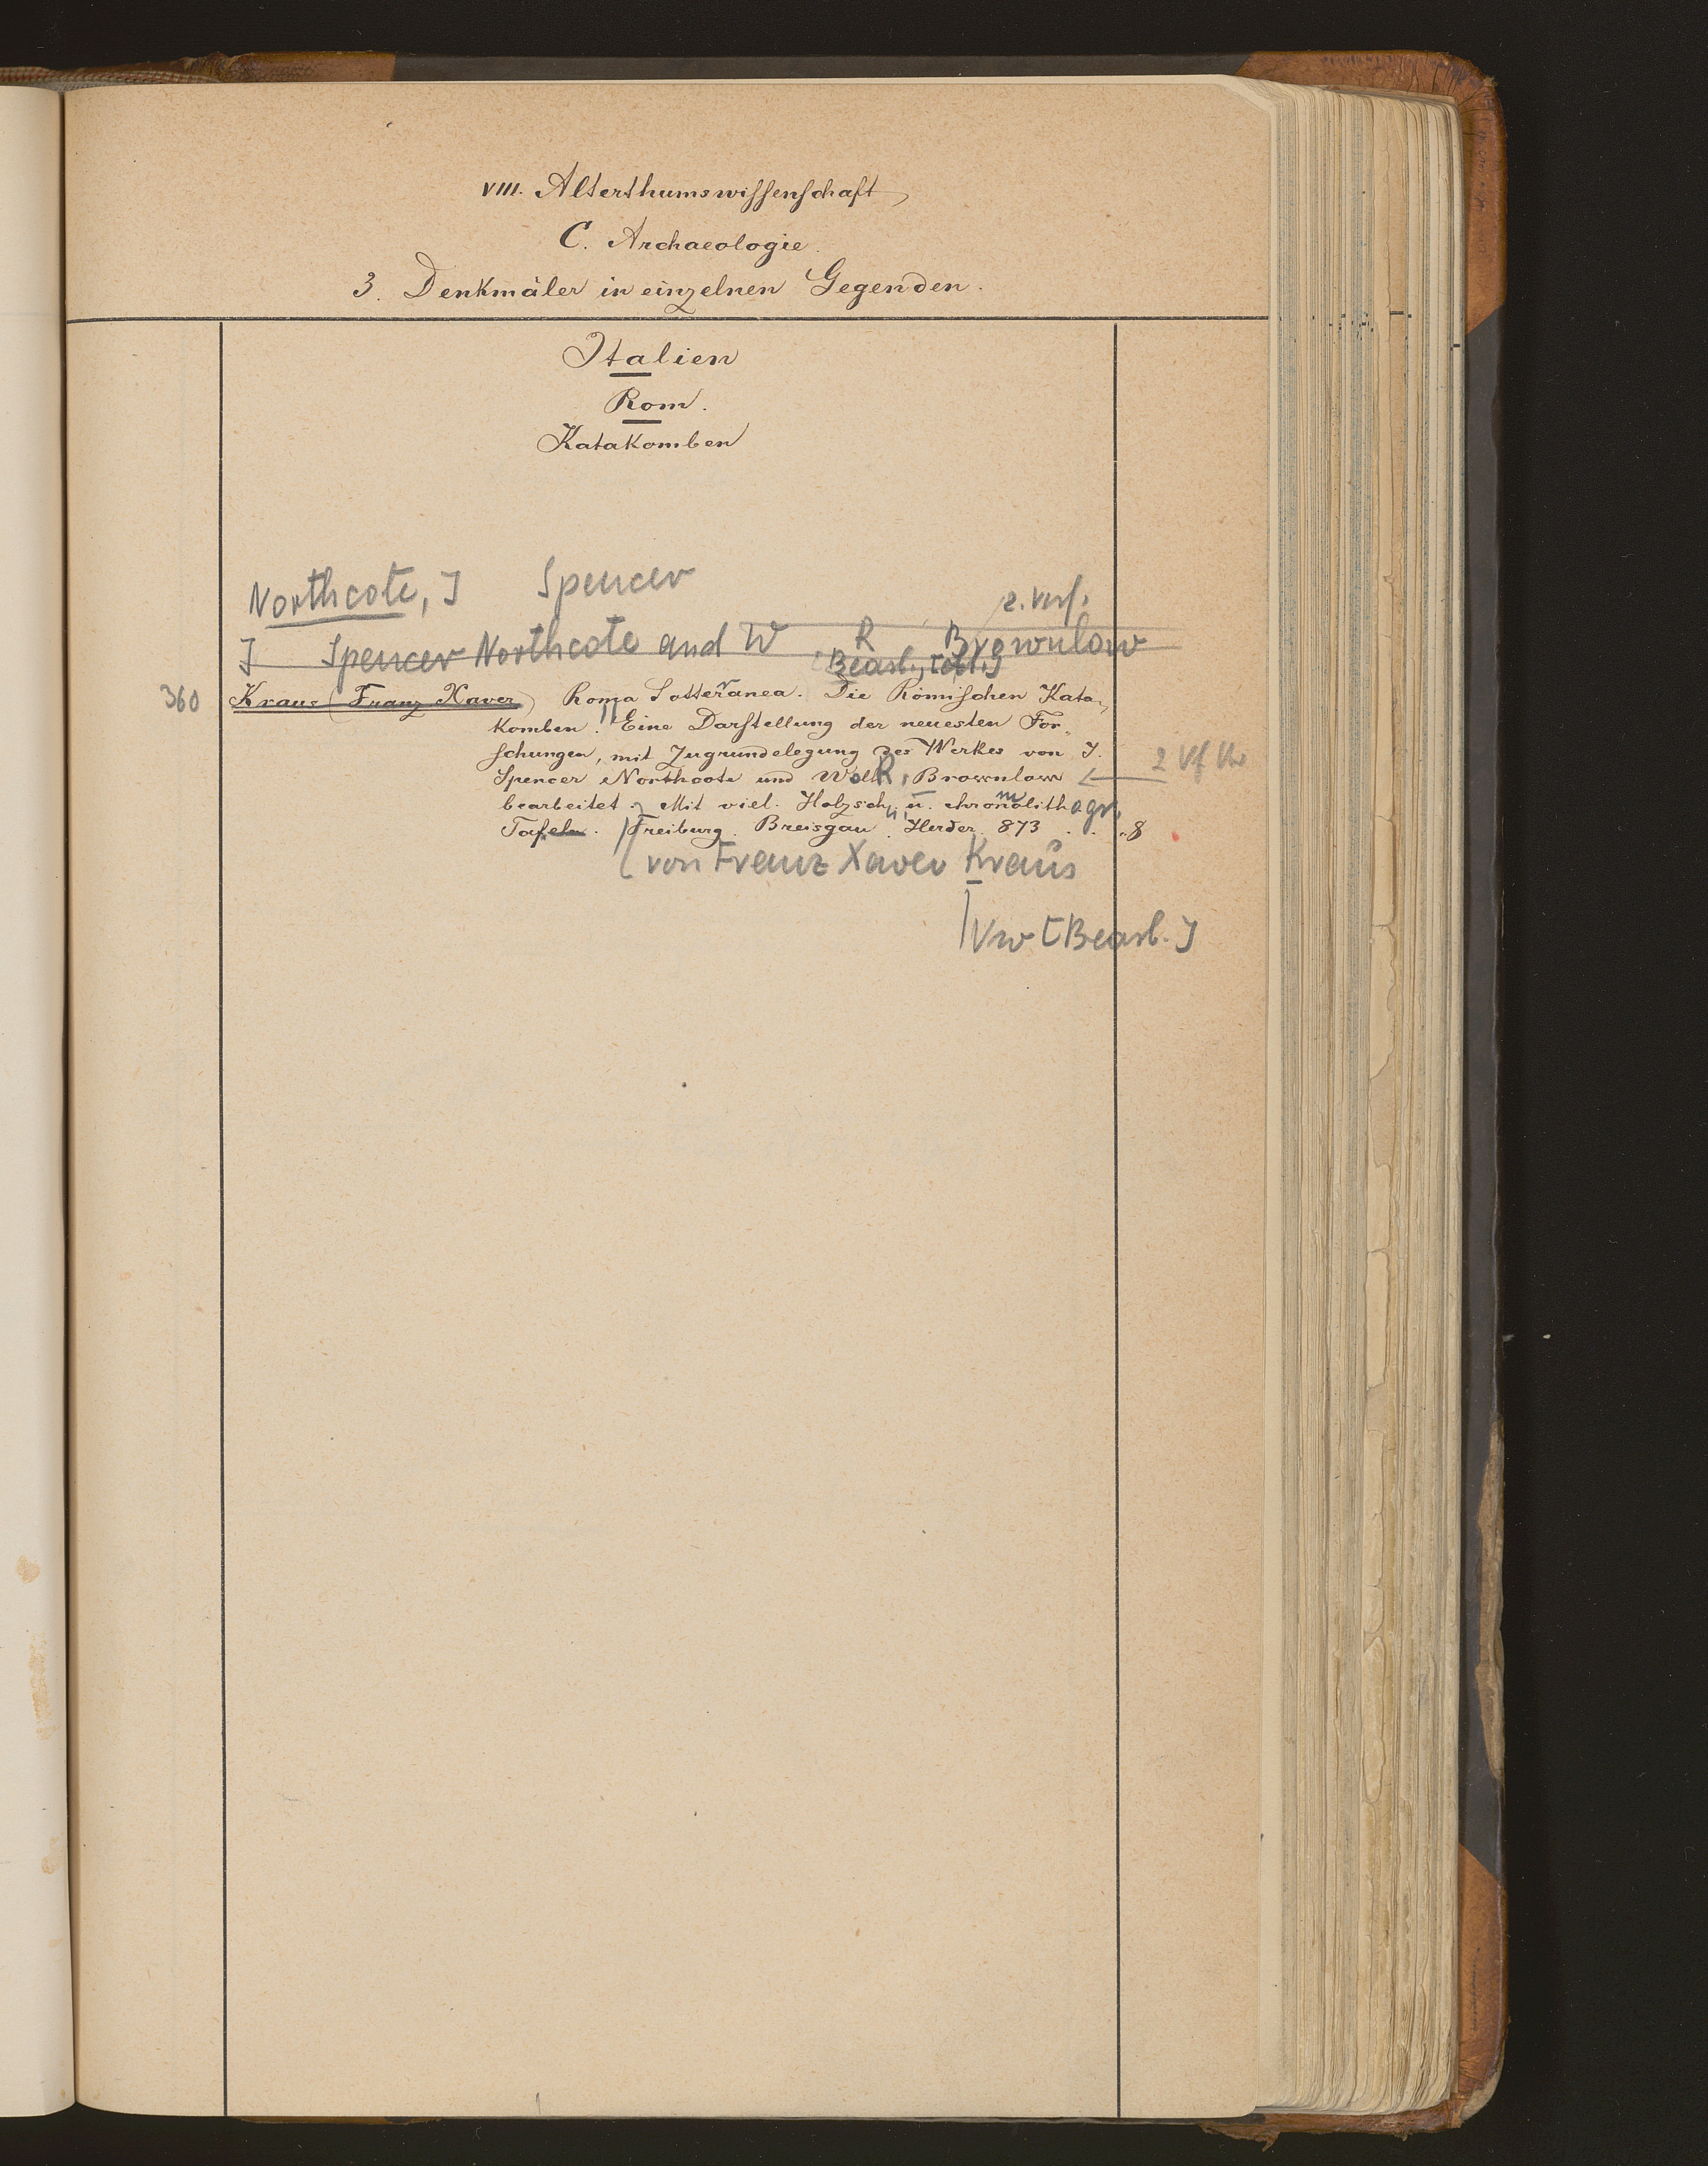 VIII. Alterthumswissenschaft
C. Archaeologie.
3. Denkmäler in einzelnen Gegenden.
Italien
Rom.
Katakomben
Northcote, J Spencer
2. Verf.
J Spencer Northcote and W R Brownlow
Bearb.,
360 Kraus (Franz Xaver) Roma Sotteranea. Die Römischen Kata-
komben. Eine Darstellung der neuesten For-
schungen, mit Zugrundelegung des Werkes von J.
Spencer Northcote und W R. Brownlow ← 2 Vf Vw
bearbeitet. Mit viel. Holzsch. u. chromolithogr.
Tafeln. Freiburg. Breisgau. Herder. 873 . . . 8
von Franz Xaver Kraus
Vw [Bearb.]